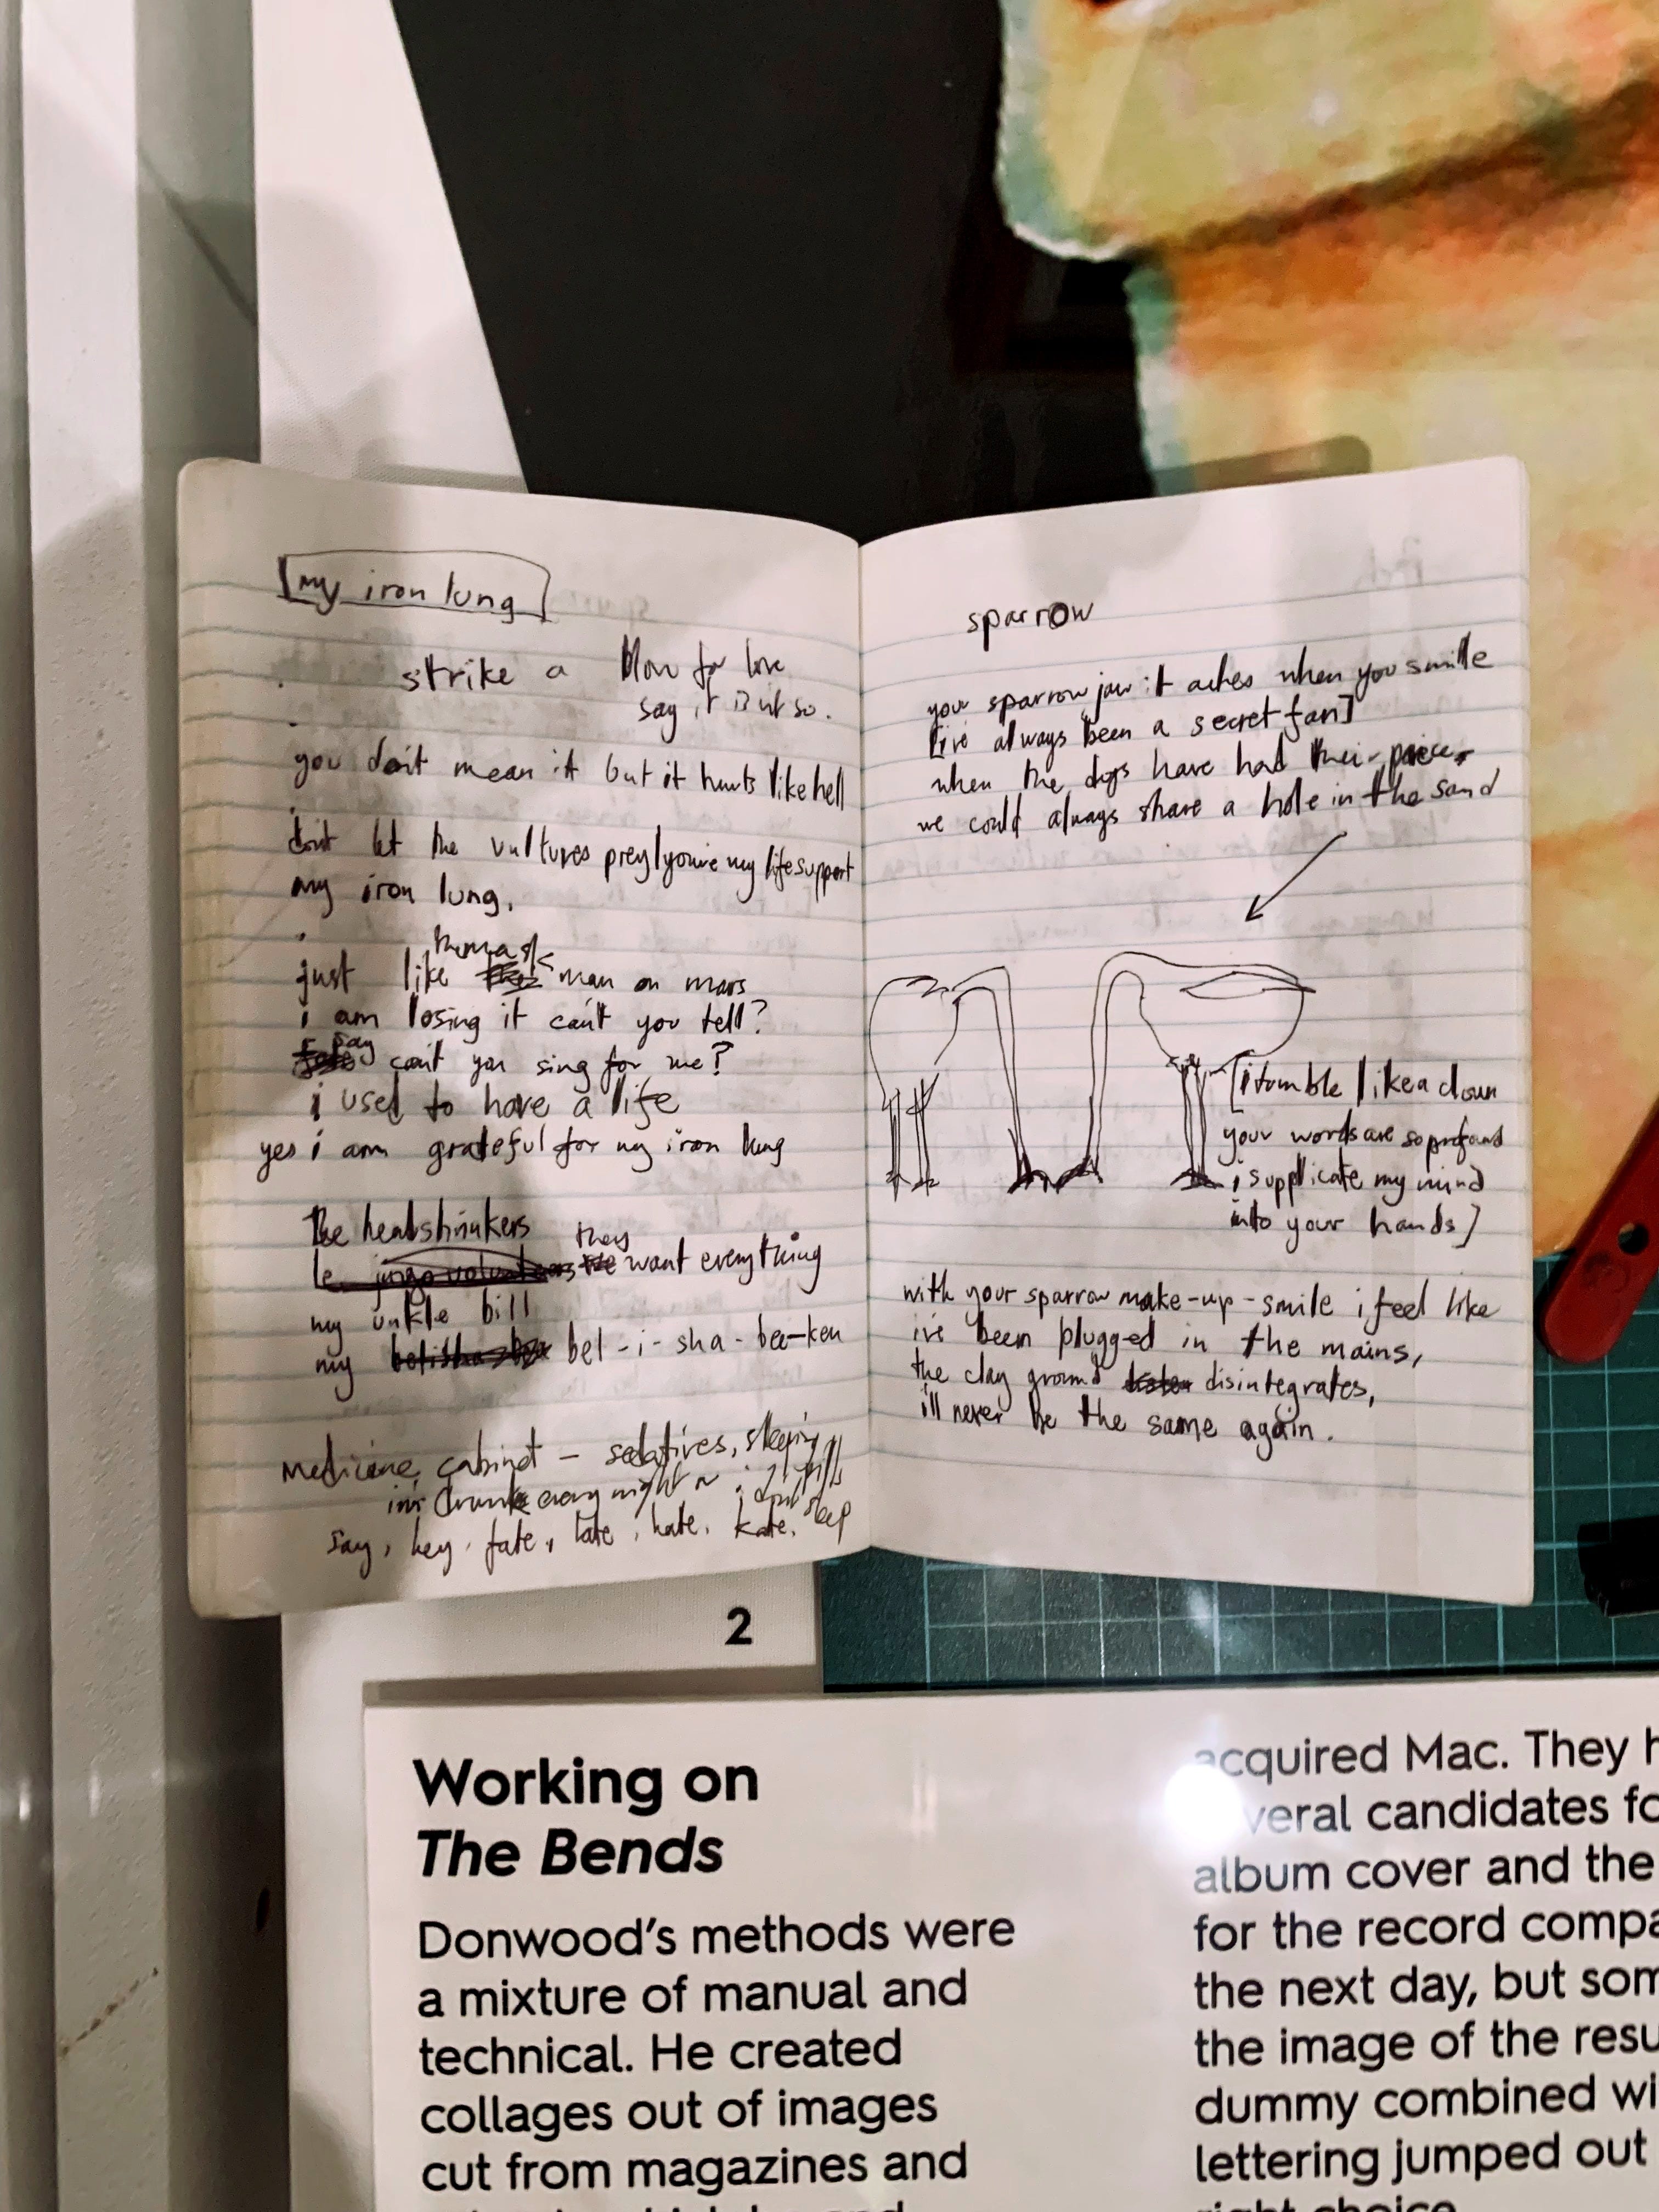 my iron lung
strike a blow for love
say it isn't so.
you don't mean it but it hurts like hell
don't let the vultures prey/you're my life support
my iron lung.
the mask
just like man on mars
i am losing it can't you tell?
say can't you sing for me?
i used to have a life
yes i am grateful for my iron lung
the headshrinkers
they
le jingo volunteers we want everything
my unkle bill
my bel-i-sha-bee-ken
medicine cabinet – sedatives, sleeping
im drunk every night or pills
i don't sleep
say, hey, fate, late, hate, kate.
sparrow
your sparrow jaw it aches when you smile
[ive always been a secret fan]
when the dogs have had their piece,
we could always share a hole in the sand
[i tumble like a clown
your words are so profound
i supplicate my mind
into your hands]
with your sparrow make-up-smile i feel like
i've been plugged in the mains,
the clay ground disintegrates,
i'll never be the same again.
2
Working on
The Bends
Donwood's methods were
a mixture of manual and
technical. He created
collages out of images
cut from magazines and
acquired Mac. They h
veral candidates fo
album cover and the
for the record compa
the next day, but som
the image of the resu
dummy combined wi
lettering jumped out
right choice